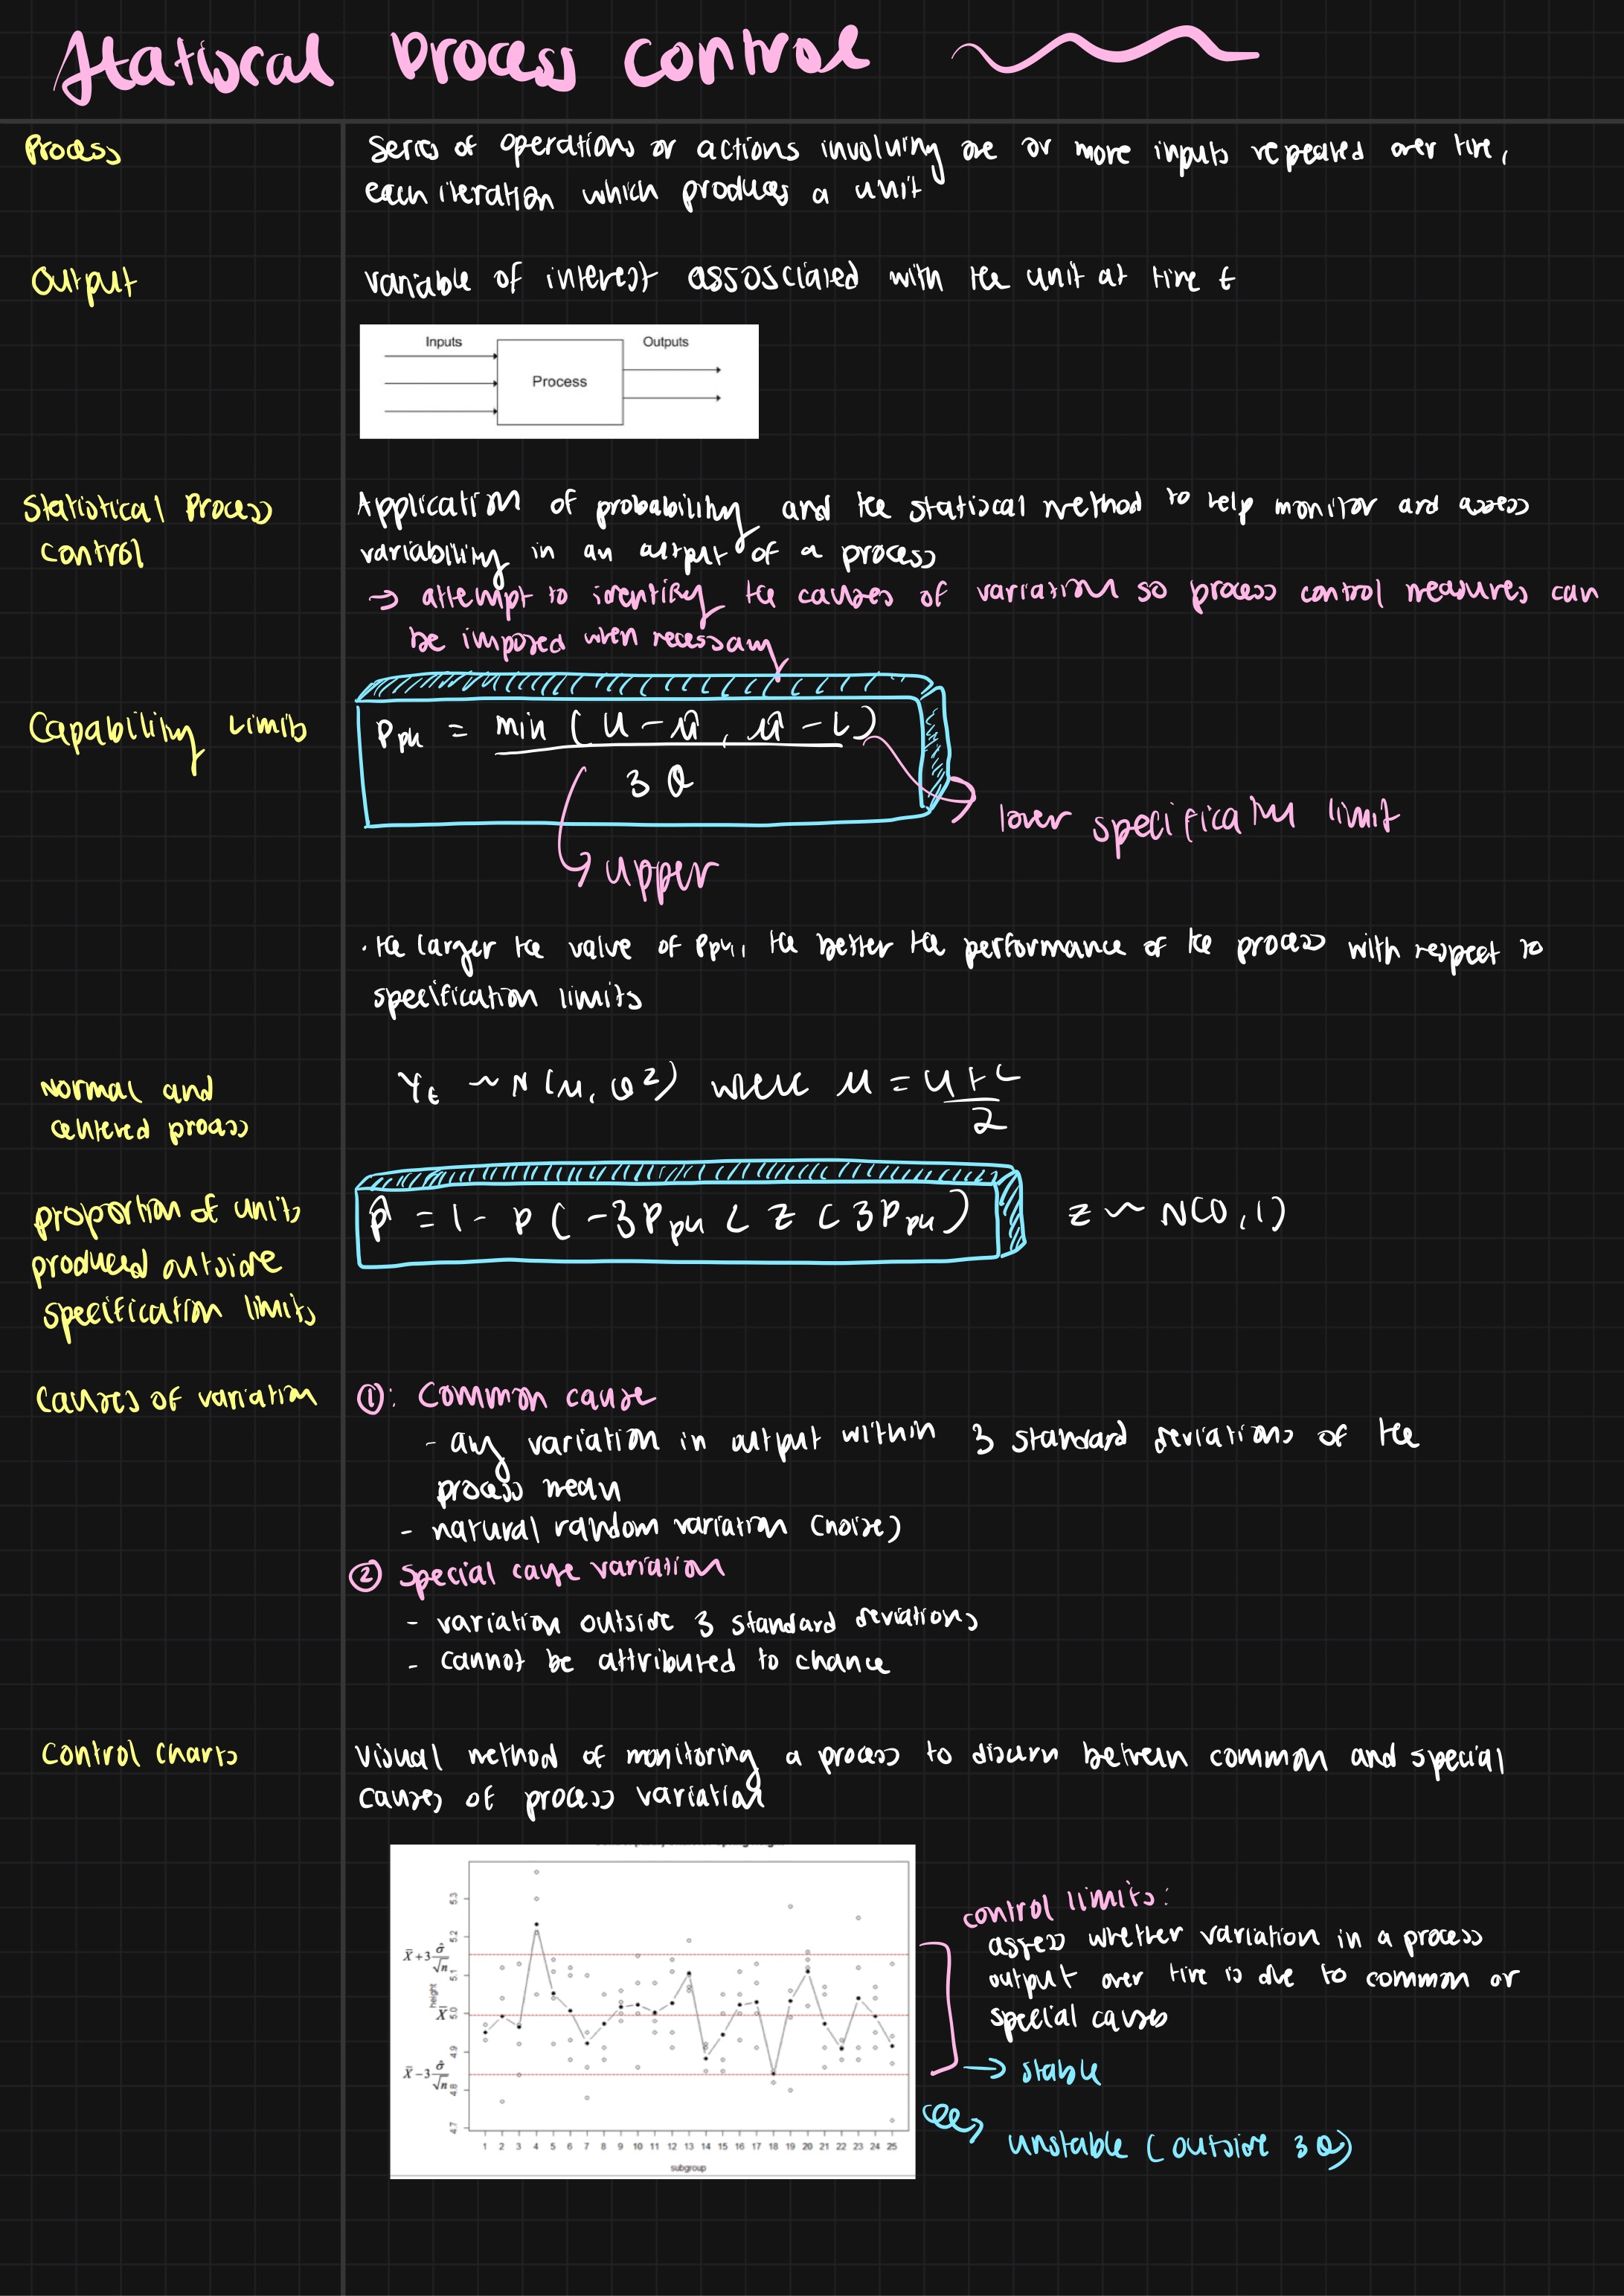 Statiscal process control
Process
Series of operations or actions involving one or more inputs repeated over time,
each iteration which produces a unit
Output
variable of interest assosciated with the unit at time t
Inputs
Outputs
Process
Statistical Process
control
Application of probability and the statiscal method to help monitor and assess
variability in an output of a process
→ attempt to identify the causes of variation so process control measures can
be imposed when necessary
Capability Limits
Ppk = min ( U - μ̂ , μ̂ - L )
3 σ̂
lower specification limit
upper
· the larger the value of Ppk, the better the performance of the process with respect to
specification limits
Normal and
centered process
Yt ~ N(μ, σ²) where μ = U + L
2
proportion of units
produced outside
specification limits
p̂ = 1 - P ( -3Ppk < Z < 3Ppk )
Z ~ N(0, 1)
Causes of variation
①: Common cause
- any variation in output within 3 standard deviations of the
process mean
- natural random variation (noise)
② Special cause variation
- variation outside 3 standard deviations
- cannot be attributed to chance
Control Charts
Visual method of monitoring a process to discern between common and special
causes of process variation
X̄+3 σ̂/√n
X̄
X̄-3 σ̂/√n
height
5.3
5.2
5.1
5.0
4.9
4.8
4.7
1 2 3 4 5 6 7 8 9 10 11 12 13 14 15 16 17 18 19 20 21 22 23 24 25
subgroup
control limits:
assess whether variation in a process
output over time is due to common or
special causes
→ stable
unstable (outside 3σ)